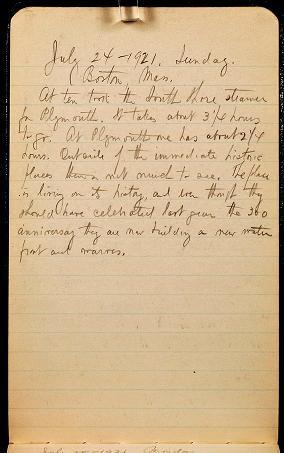 July 24-1921. Sunday.
(Boston, Mass.
At ten took the South Shore steamer
for Plymouth. It takes about 3 1/4 hours
to go. At Plymouth one has about 2 1/4
hours. Outside of the immediate historic
places there is not much to see. The place
is living on its history, and even though they
should have celebrated last year the 300
anniversary they are now building a new water
front and wharves.